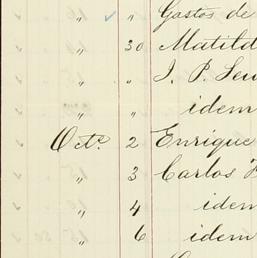 " " Gastos de
" 30 Matild
" " J. P. Lew
" " idem
Octe 2 Enrique
" 3 Carlos
" 4 idem
" 6 idem